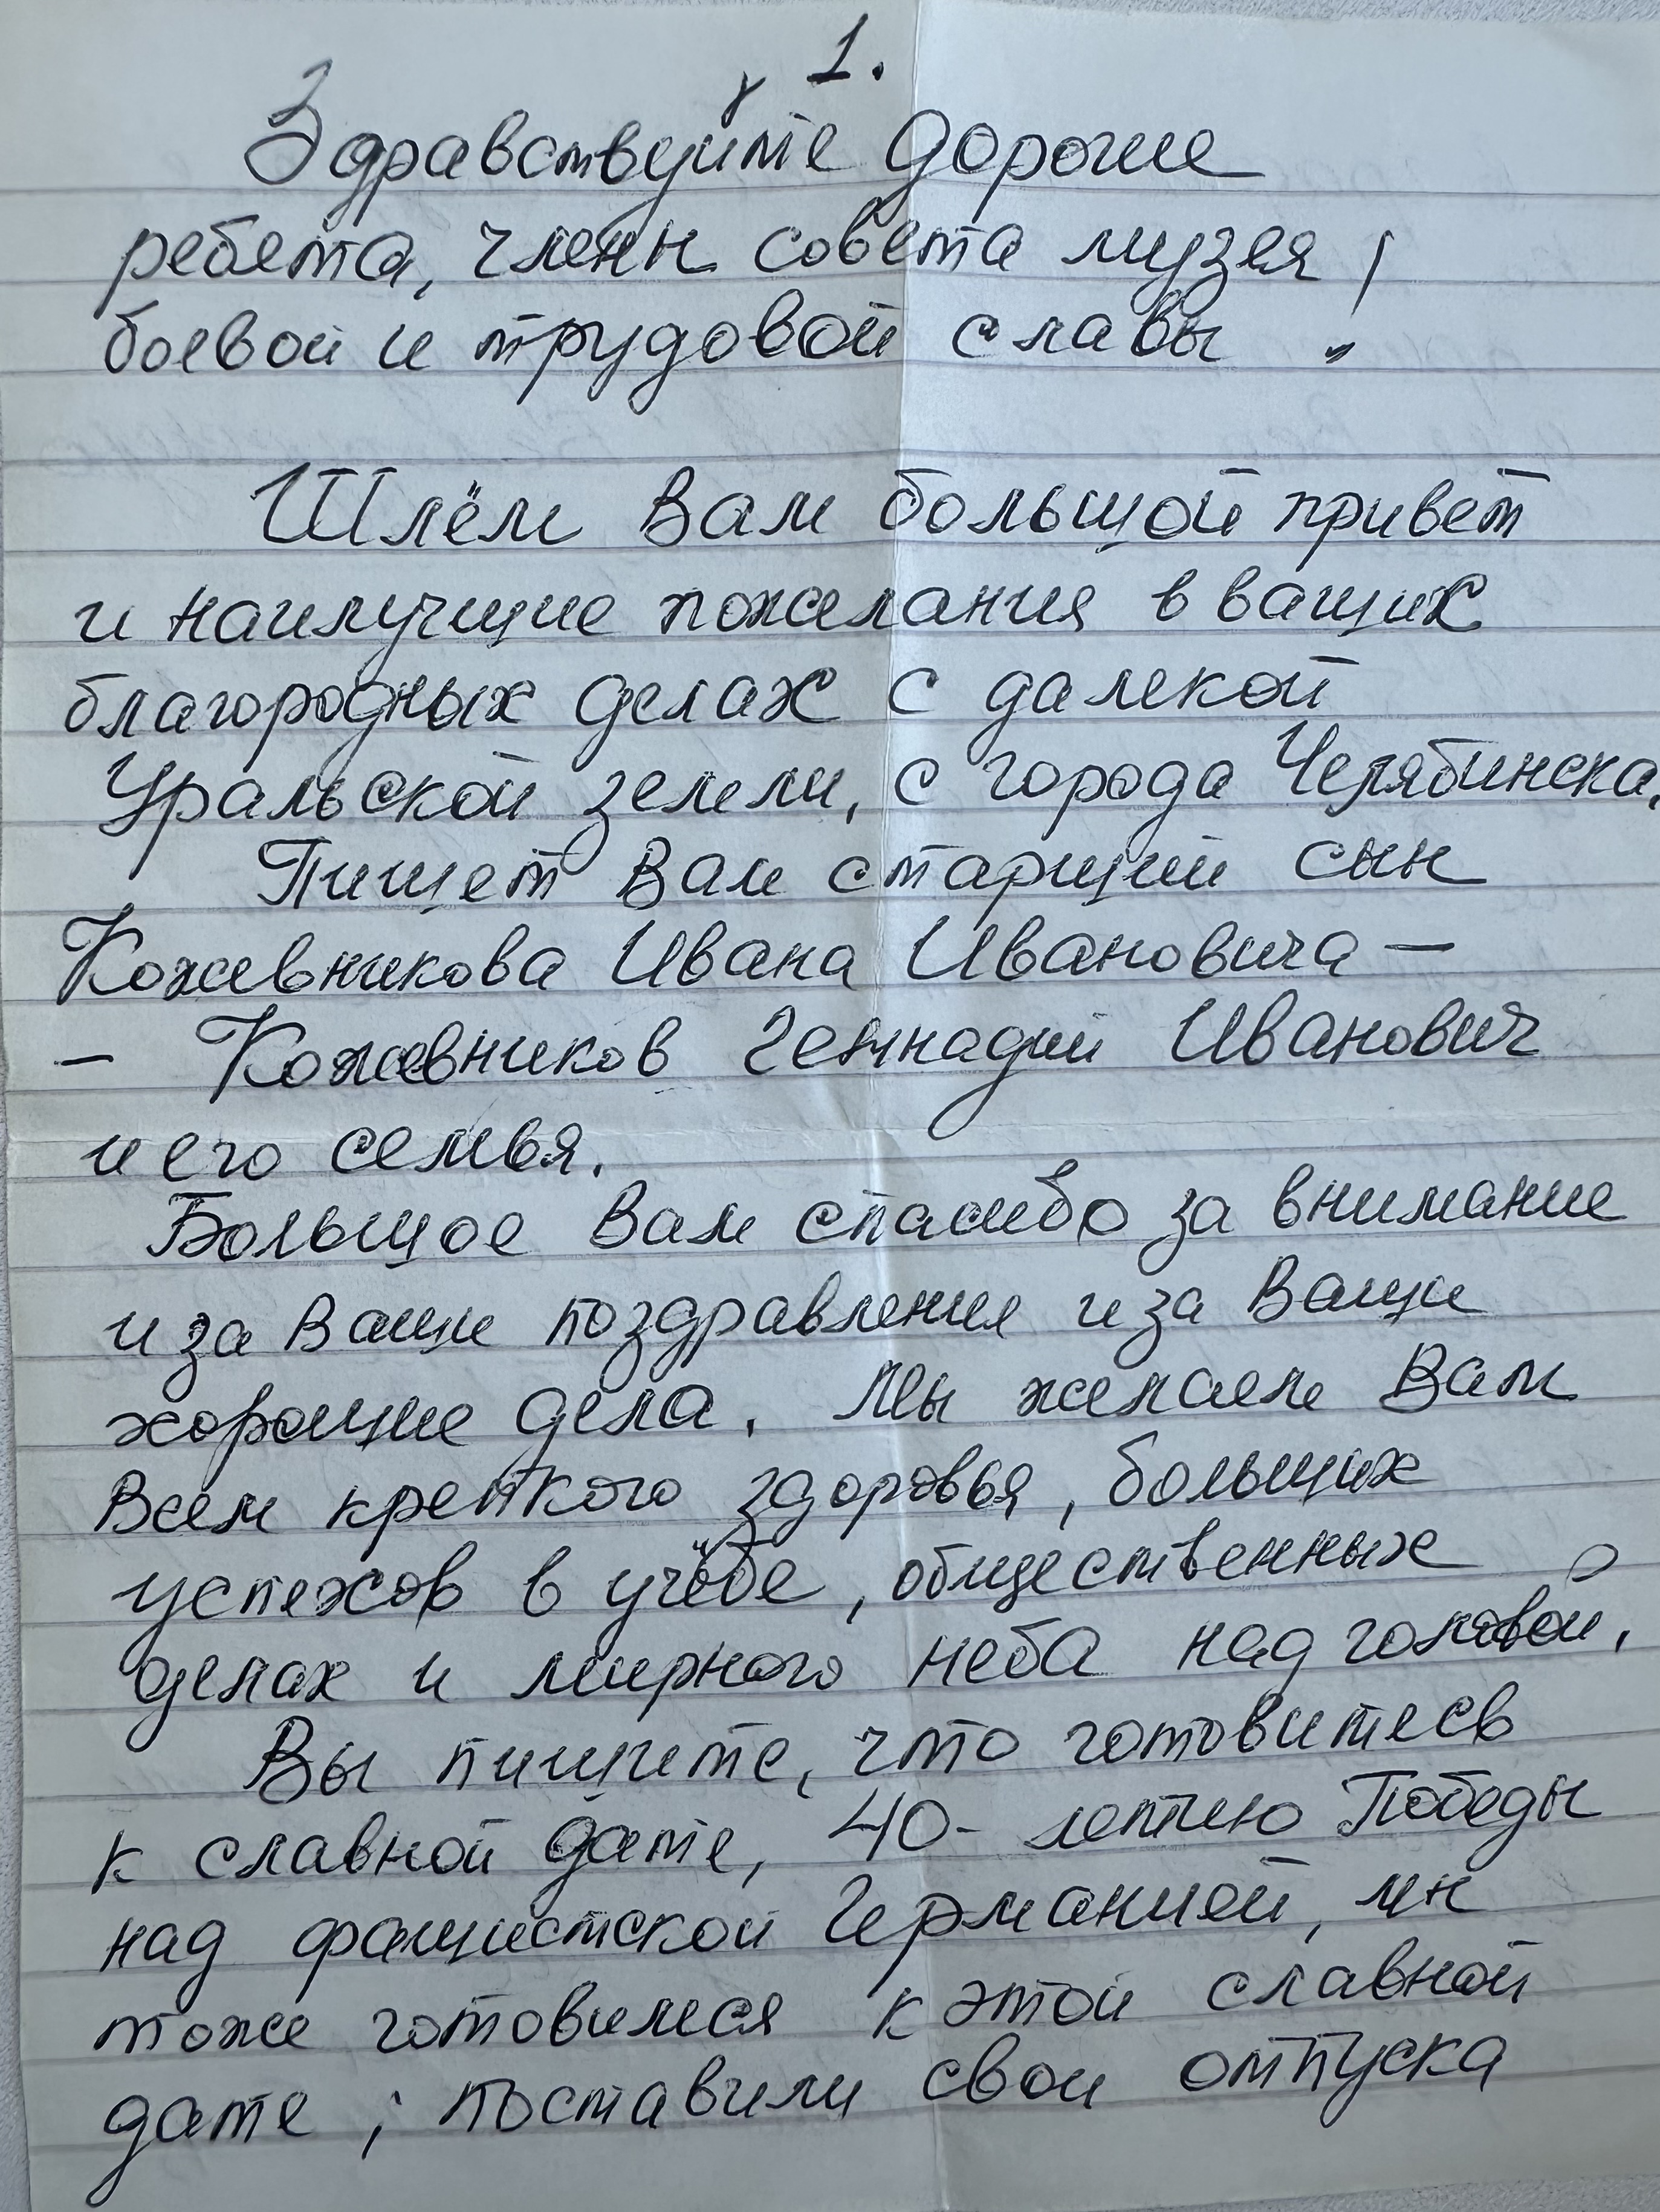 1.
Здравствуйте дорогие
ребята, члены совета музея
боевой и трудовой славы !
Шлём Вам большой привет
и наилучшие пожелания в ваших
благородных делах с далекой
Уральской земли, с города Челябинска.
Пишет Вам старший сын
Кожевникова Ивана Ивановича —
— Кожевников Геннадий Иванович
и его семья.
Большое Вам спасибо за внимание
и за Ваши поздравления и за Ваши
хорошие дела. Мы желаем Вам
Всем крепкого здоровья, больших
успехов в учёбе, общественных
делах и мирного неба над головой.
Вы пишите, что готовитесь
к славной дате, 40-летию Победы
над фашистской Германией, мы
тоже готовимся к этой славной
дате; поставили свои отпуска